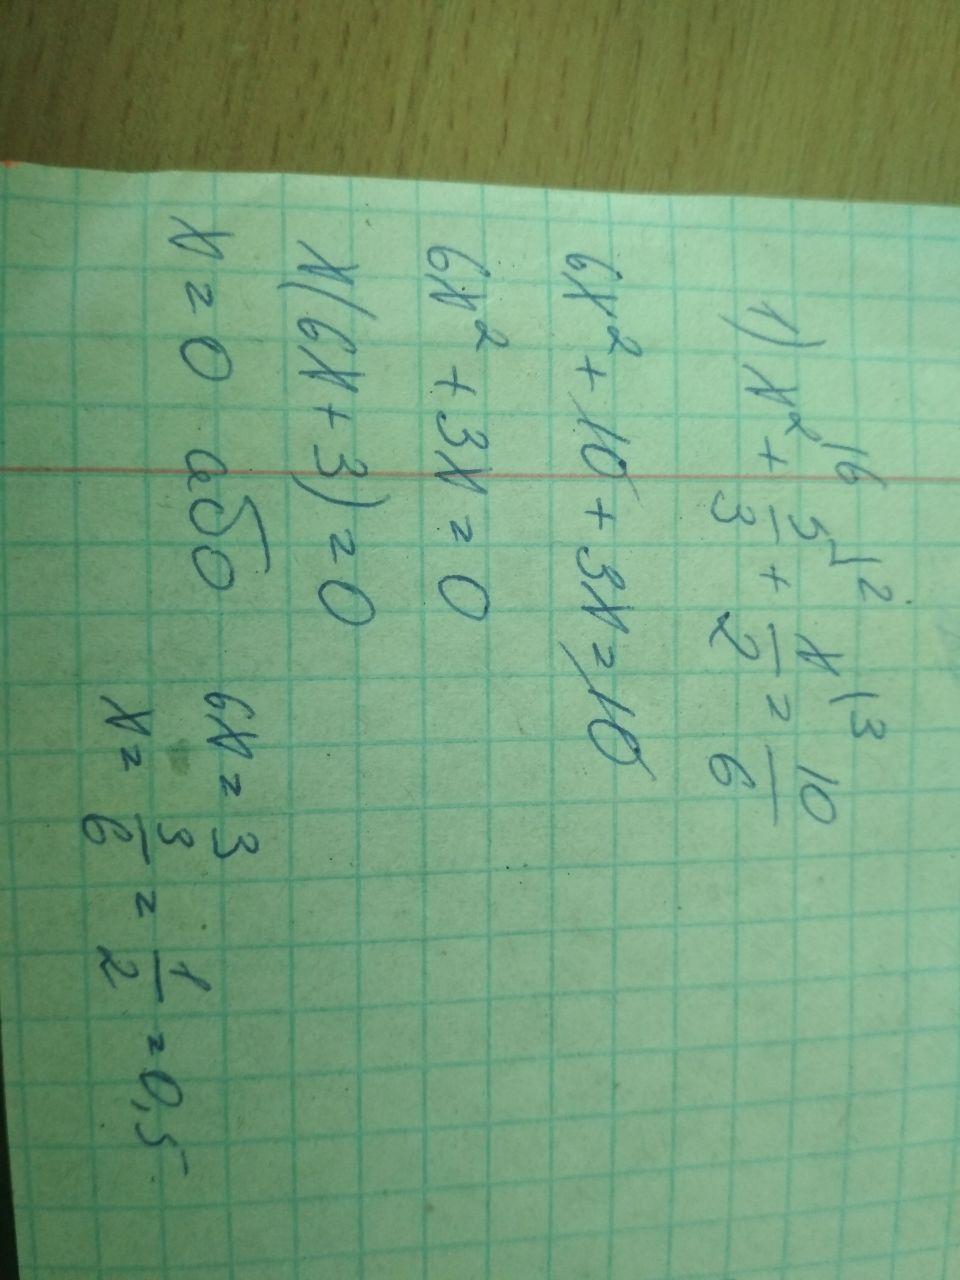 1) x² + 5/3 + x/2 = 10/6 |6 |2 |3
6x² + 10 + 3x = 10
6x² + 3x = 0
x(6x + 3) = 0
x = 0 або 6x = 3
x = 3/6 = 1/2 = 0,5